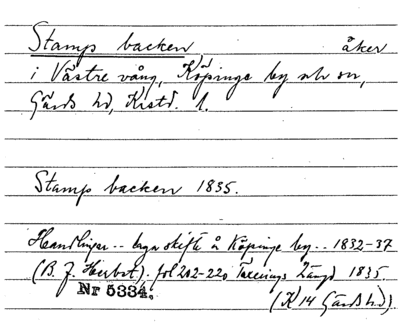 Stamps backen, åker
i Västre vång, Köpinge by o sn,
Gärds hd, Kristd. l.
Stamps backen 1835.
Handlingar .. laga skifte å Köpinge by .. 1832-37
(B. J. Herbst). fol 202-220 Taxerings Längd 1835.
Nr 5334.
(K 14 Gärds hd).